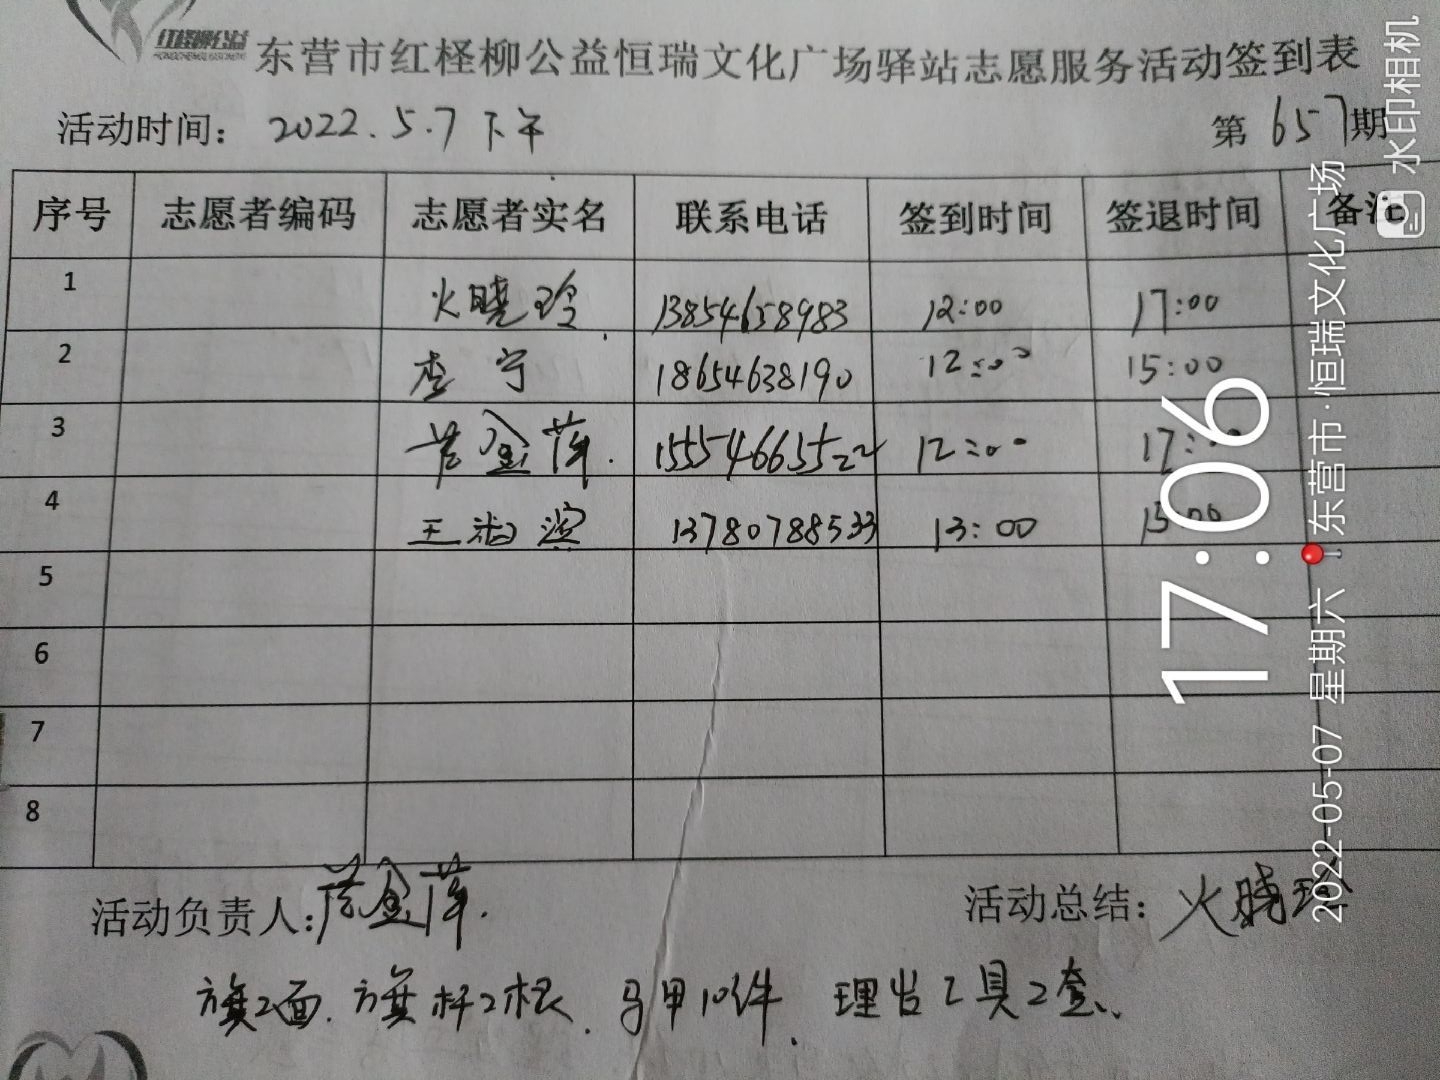 红柽柳公益
东营市红柽柳公益恒瑞文化广场驿站志愿服务活动签到表
活动时间： 2022.5.7 下午 第 657 期
序号 志愿者编码 志愿者实名 联系电话 签到时间 签退时间 备注
1 火晓玲 13854658983 12:00 17:00
2 李宁 18654638190 12:00 15:00
3 黄金萍. 15554665522 12:00 17:00
4 王 13780788533 13:00 15:00
5
6
7
8
活动负责人: 黄金萍. 活动总结: 火晓玲
旗2面. 旗杆2根. 马甲10件. 理发工具2套.
水印相机
17:06
2022-05-07 星期六 东营市·恒瑞文化广场